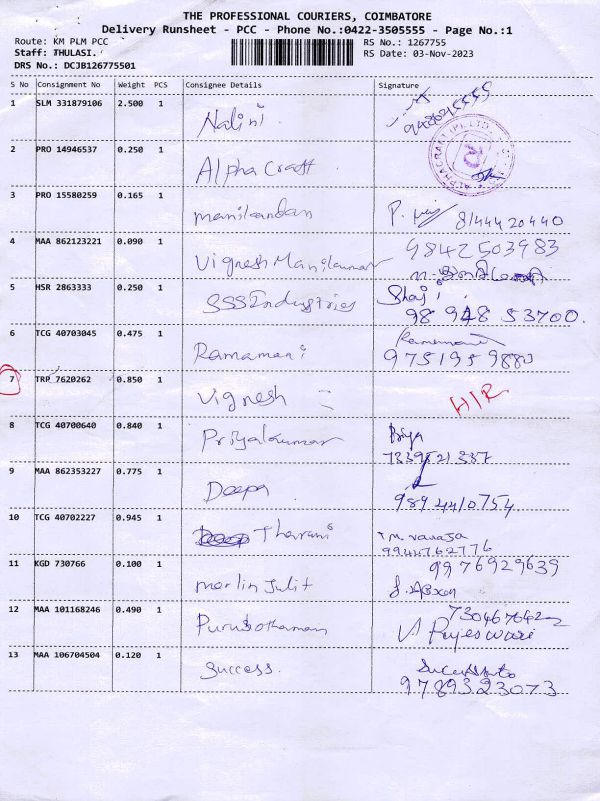 THE PROFESSIONAL COURIERS, COIMBATORE
Delivery Runsheet - PCC - Phone No.:0422-3505555 - Page No.:1
Route: KM PLM PCC
Staff: THULASI.
DRS No.: DCJB126775501
RS No.: 1267755
RS Date: 03-Nov-2023
S No Consignment No Weight PCS Consignee Details Signature
1 SLM 331879106 2.500 1 Nalini
2 PRO 14946537 0.250 1 Alpha Craft
3 PRO 15580259 0.165 1 manikandan 8144420440
4 MAA 862123221 0.090 1 Vignesh Manikumar 9842503983
5 HSR 2863333 0.250 1 SSS Industries Shaji
98948 53700.
6 TCG 40703045 0.475 1 Ramamani Ramamani
9751959880
7 TRP 7620262 0.850 1 Vignesh H/R
8 TCG 40700640 0.840 1 Priyakumar Priya
9 MAA 862353227 0.775 1 Deepa
9894410754
10 TCG 40702227 0.945 1 Tharani M. Vanaja
9944762776
11 KGD 730766 0.100 1 merlin Julit 9976929639
12 MAA 101168246 0.490 1 Purusothaman
V Rajeswari
13 MAA 106704504 0.120 1 Success.
9789323073